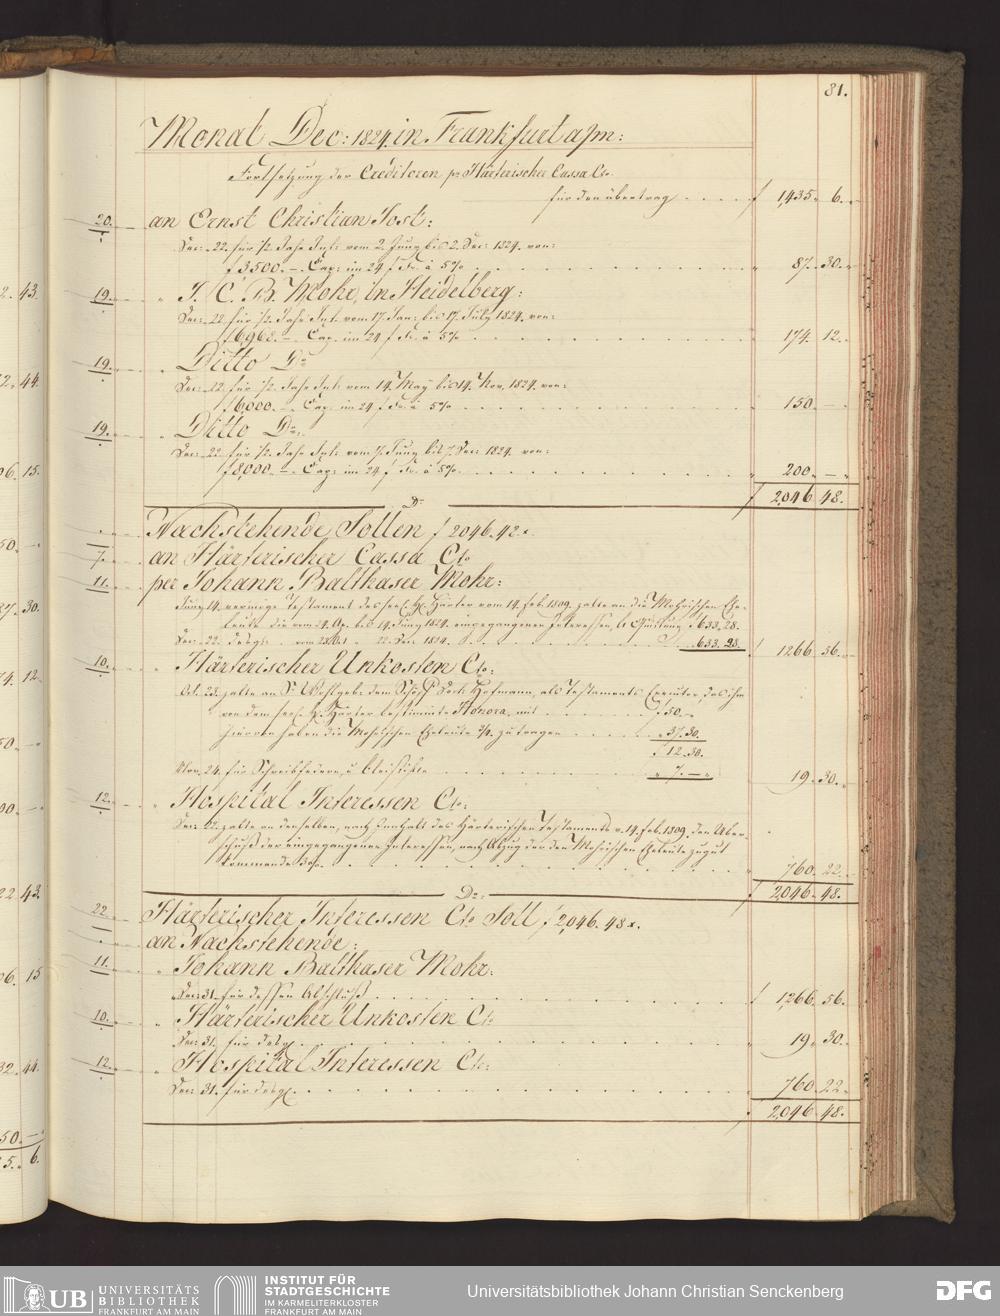 81.
Monat Dec: 1824. in Frankfurt a/m:
Fortsetzung der Creditoren pr Härterischer Cassa Cto.
für den übertrag . . . . f 1,435. 6.
20. an Ernst Christian Jost:
Dec: 22. für 1/2. Jahr Int: vom 2. Juny bis 2. Dec: 1824. von:
f 3500. – Cap: im 24 f Fs. à 5% . . . 87. 30.
19. " J. C. B. Mohr, in Heidelberg:
Dec: 22. für 1/2. Jahr Int. vom 17. Jan: bis 17. July 1824. von:
f 6968. – Cap. im 24 f Fs. à 5% . . . 174. 12.
19. " Ditto Do
Dec: 22. für 1/2. Jahr Int: vom 14. May bis 14. Nov. 1824. von:
f 6,000. – Cap. im 24 f Fs. à 5% . . . 150. –
19. " Ditto Do.
Dec: 22. für 1/2. Jahr Int: vom 7. Juny bis 7. Dec: 1824. von:
f 8,000. – Cap: im 24 f Fs. à 5% . . . 200. –
f 2,046. 48.
Do
Nachstehende Sollen f 2046. 42 x.
7. an Härterischer Cassa Cto
11. per Johann Balthaser Mohr:
Juny 14. vermöge Testament des seel. H. Härter vom 14. Feb. 1809. zalte an die Mohrischen Ehe-
leute die vom 24. Ap. bis 14. Juny 1824. eingegangenen Interessen, lt Quittung f 633. 28.
Dec: 22. desgl: vom 28. Oct. – 22. Dec. 1824. . . . 633. 28. f 1266. 56.
10. " Härterischer Unkosten Cto:
Oct. 23. zalte an Sr Wohlgeb: dem Schöff Doctr Hofmann, als Testaments Executor, das ihm
von dem seel. H. Härter bestimmte Honora, mit . . . f 50. –
hiervon haben die Mohrischen Eheleute 3/4. zu tragen . . . 37. 30.
f 12. 30.
Nov. 24. für Schreibfedern, u Bleistifte . . . 7. – 19. 30.
12. " Hospital Interessen Cto:
Dec: 22. zalte an denselben, nach Innhalt des Härterischen Testaments v. 14. Feb. 1809. den Über-
schuß der eingegangenen Interessen, nach Abzug der den Mohrischen Eheleute zugut
kommende 3050. . . . 760. 22.
f 2,046. 48.
Do:
22. Härterischer Interessen Cto Soll f 2,046. 48 x.
an Nachstehende:
11. " Johann Balthaser Mohr:
Dec: 31. für dessen Abschluß . . . f 1,266. 56.
10. " Härterischer Unkosten Cto
Dec: 31. für desgl. . . . 19. 30.
12. " Hospital Interessen Cto:
Dec: 31. für desgl. . . . 760. 22.
2,046. 48.
2. 43.
22. 44.
06. 15.
50. –
27. 30.
74. 12.
50. –
00. –
22. 43.
06. 15
32. 44.
50. –
5. 6.
UB UNIVERSITÄTS
BIBLIOTHEK
FRANKFURT AM MAIN
INSTITUT FÜR
STADTGESCHICHTE
IM KARMELITERKLOSTER
FRANKFURT AM MAIN
Universitätsbibliothek Johann Christian Senckenberg
DFG